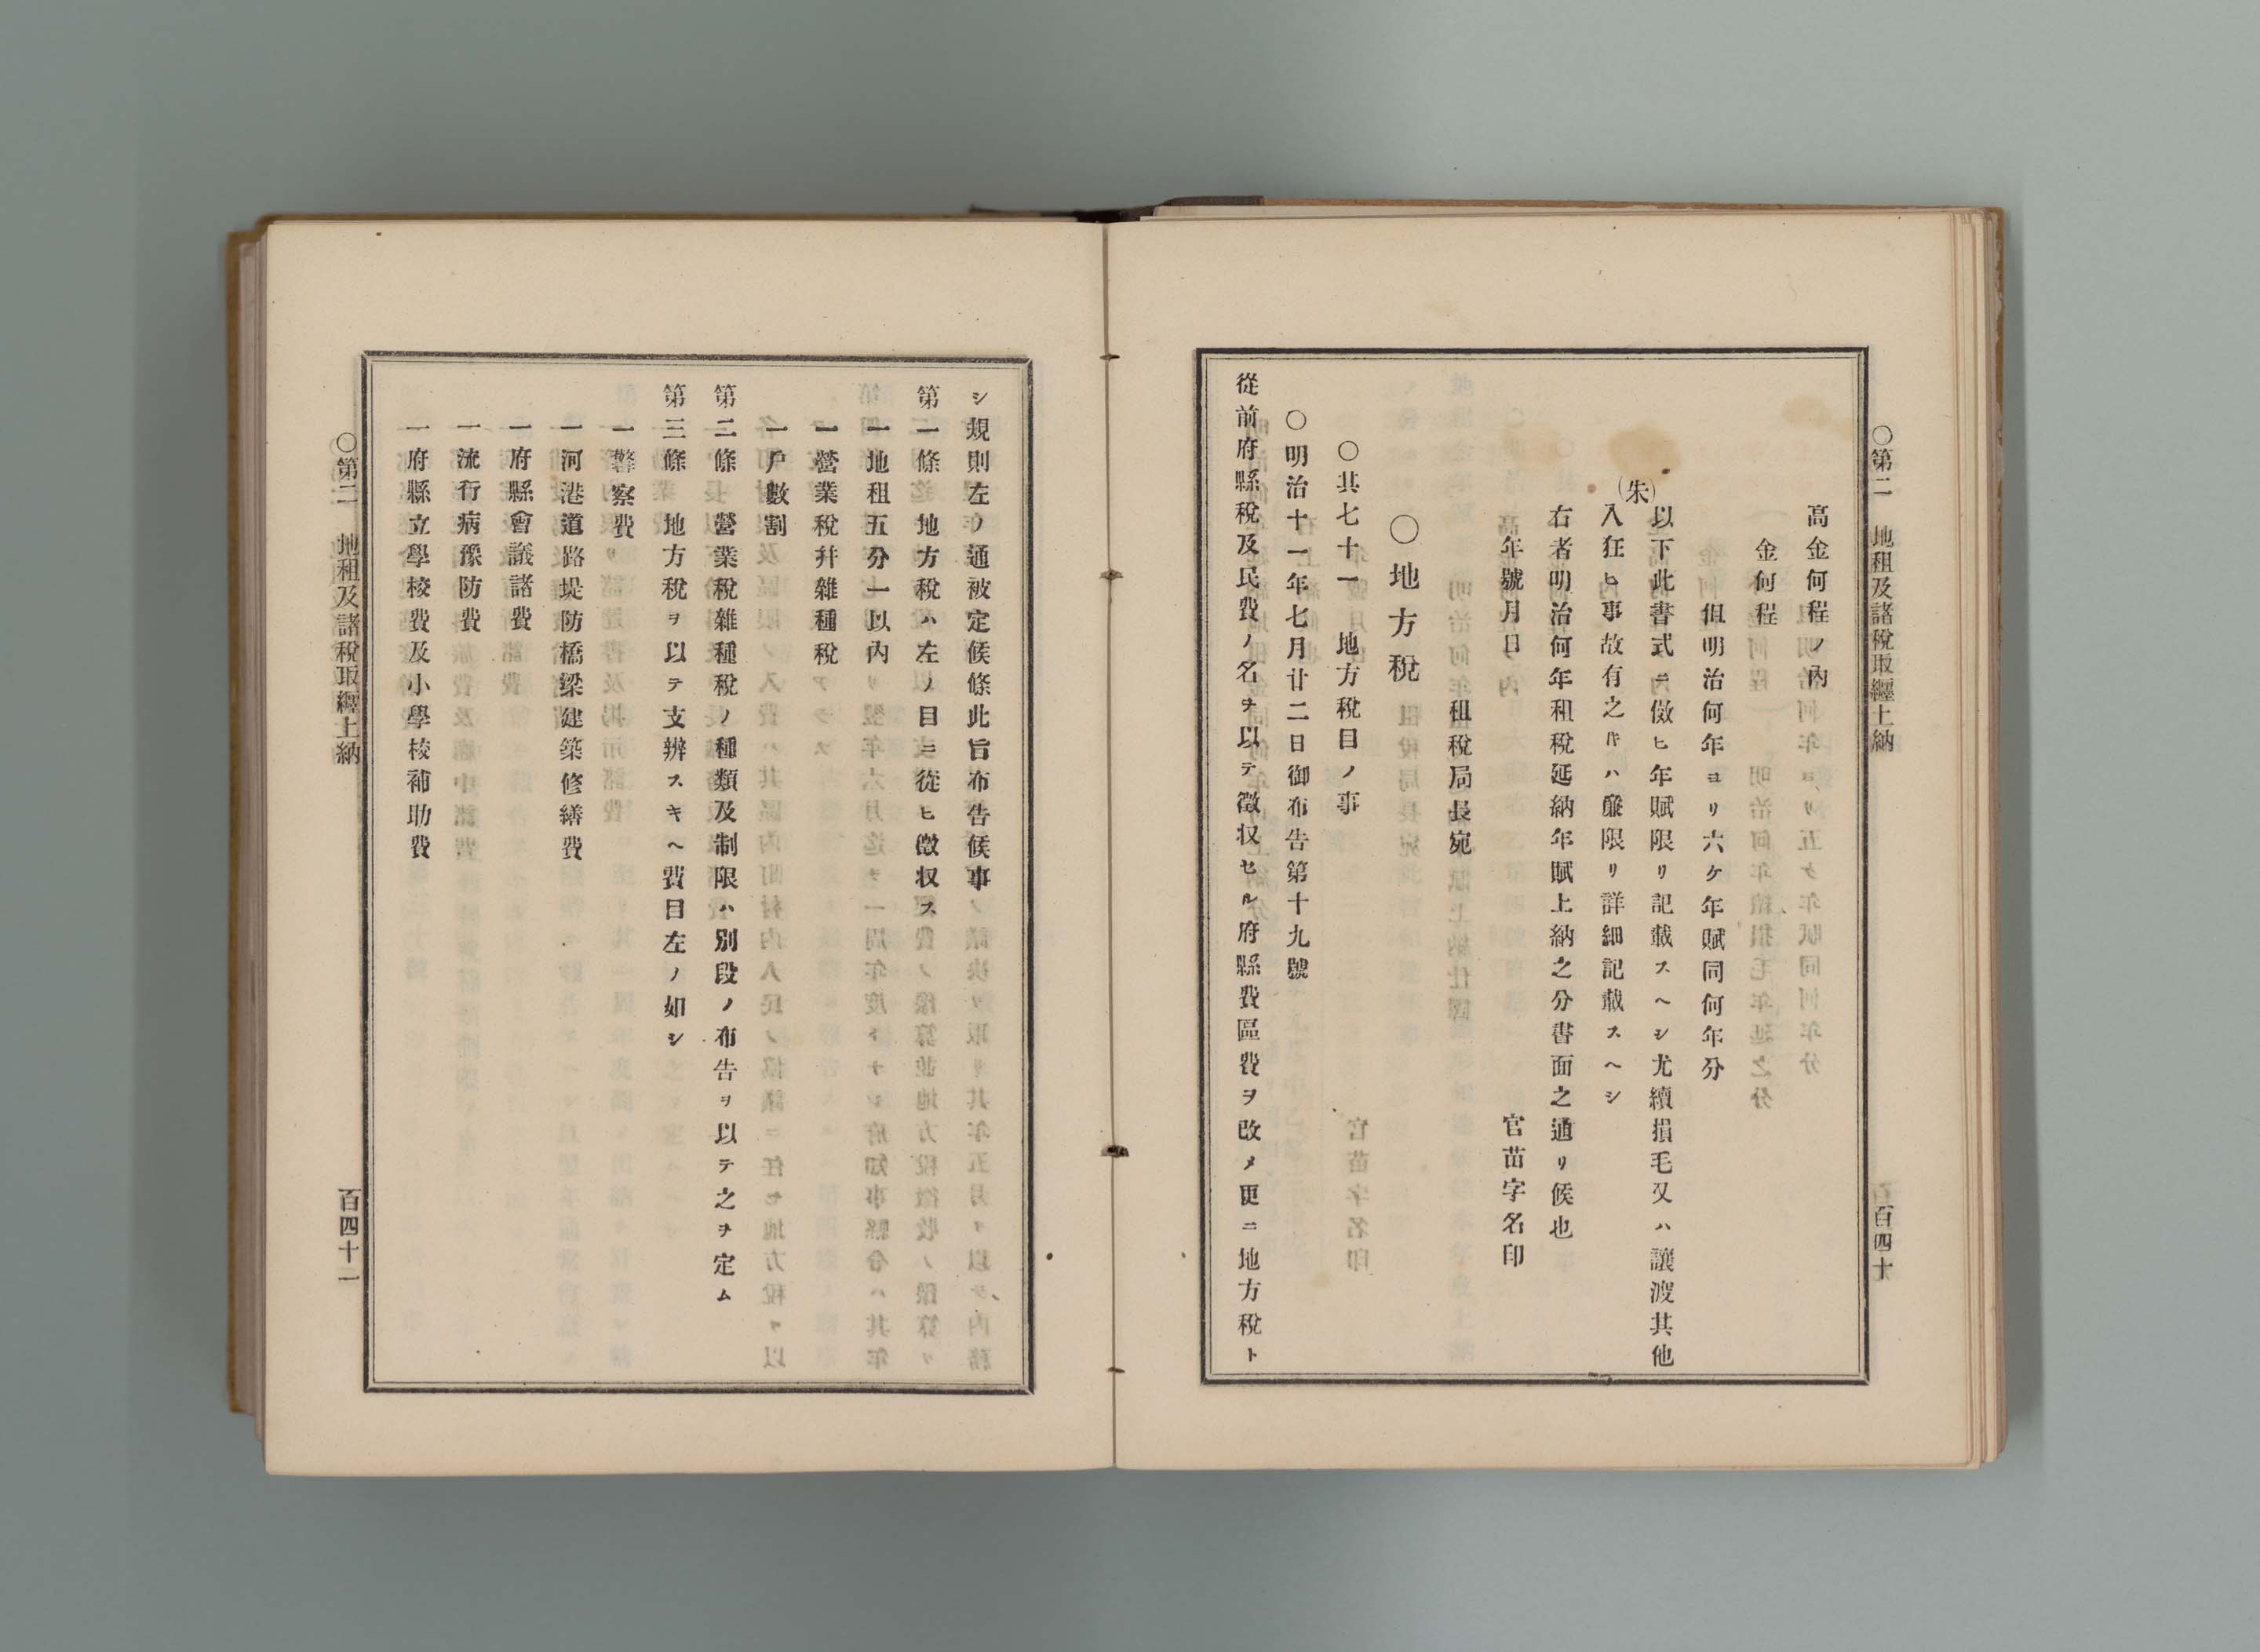 ○第二　地租及諸稅取纒上納
百四十
高金何程ノ內
金何程
但明治何年ヨリ六ケ年賦同何年分
(朱)
以下此書式ニ傚ヒ年賦限リ記載スヘシ尤續損毛又ハ讓渡其他
入狂ヒ事故有之ㇳキハ廉限リ詳細記載スヘシ
右者明治何年租稅延納年賦上納之分書面之通リ候也
年號月日　官苗字名印
租稅局長宛
○地方稅
○其七十一　地方稅目ノ事
○明治十一年七月廿二日御布告第十九號
從前府縣稅及民費ノ名ヲ以テ徵収セル府縣費區費ヲ改メ更ニ地方稅ト
シ規則左ノ通被定候條此旨布告候事
第一條　地方稅ハ左ノ目ニ從ヒ徵収ス
一地租五分一以內
一營業稅幷雜種稅
一戶數割
第二條　營業稅雜種稅ノ種類及制限ハ別段ノ布告ヲ以テ之ヲ定ム
第三條　地方稅ヲ以テ支辨スキヘ費目左ノ如シ
一警察費
一河港道路堤防橋梁建築修繕費
一府縣會議諸費
一流行病豫防費
一府縣立學校費及小學校補助費
○第二　地租及諸稅取纒上納
百四十一